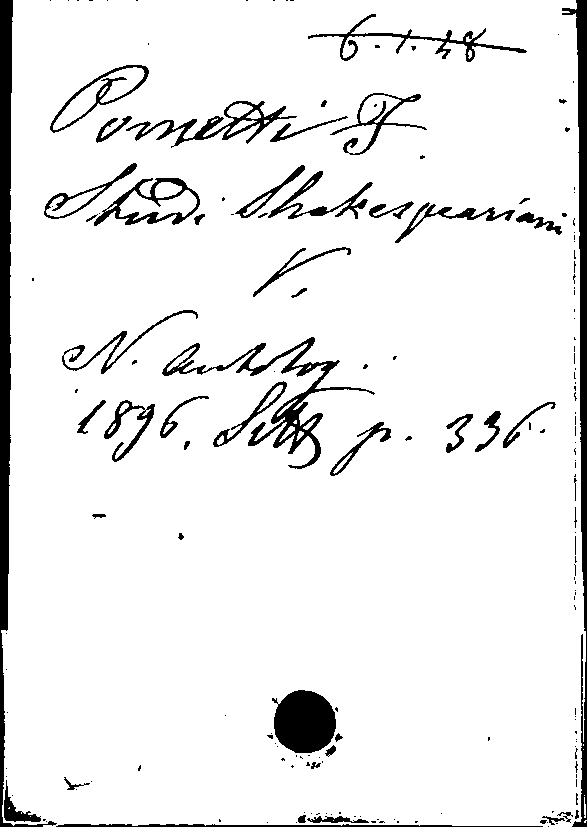 6.1.48
Pometti F
Studi Shakespeariani
V.
N. Antolog.
1896. Sett p. 336.